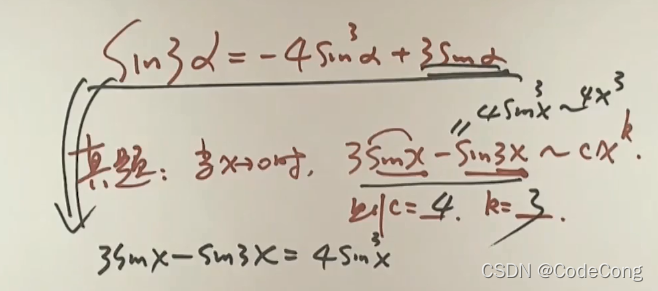 Sin3α = -4Sin³α + 3Sinα
4Sin³x ~ 4x³
真题: 当x→0时, 3Sinx - Sin3x ~ cx^k.
则c = 4. k = 3.
3Sinx - Sin3x = 4Sin³x
CSDN @CodeCong